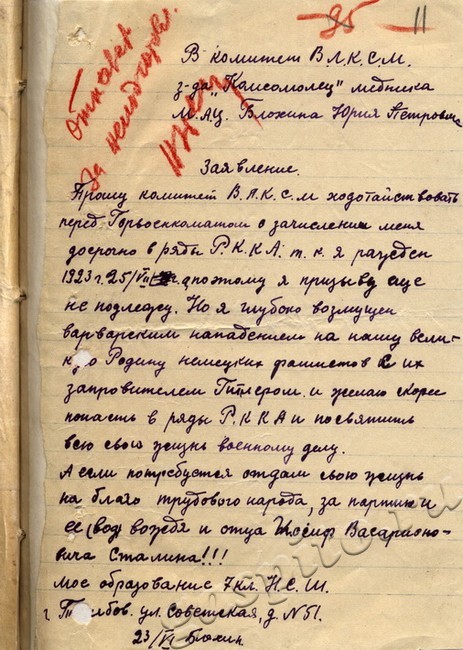 95 - 11
Отказать
за немолодостью
В комитет В.Л.К.С.М.
з-да "Комсомолец" медника
М.А.Ц. Блохина Юрия Петровича
Заявление.
Прошу комитет В.Л.К.С.М ходотайствовать
перед Горвоенкоматом о зачислении меня
досрочно в ряды Р.К.К.А. т.к. я рожден
1923г. 25/VII г. а поэтому я призыву еще
не подлежу. Но я глубоко возмущен
варварским нападением на нашу вели-
кую Родину немецких фашистов с их
запровителем Гитлером и желаю скорее
попасть в ряды Р.К.К.А и посвятить
всю свою жизнь военному делу.
А если потребуется отдам свою жизнь
на благо трудового народа, за партию и
ее (вод вождя и отца Иосиф Васарионо-
вича Сталина!!!
Мое образование 7кл. Н.С.Ш.
г. Тамбов. ул. Советская, д. №51.
23/VI Блохин.